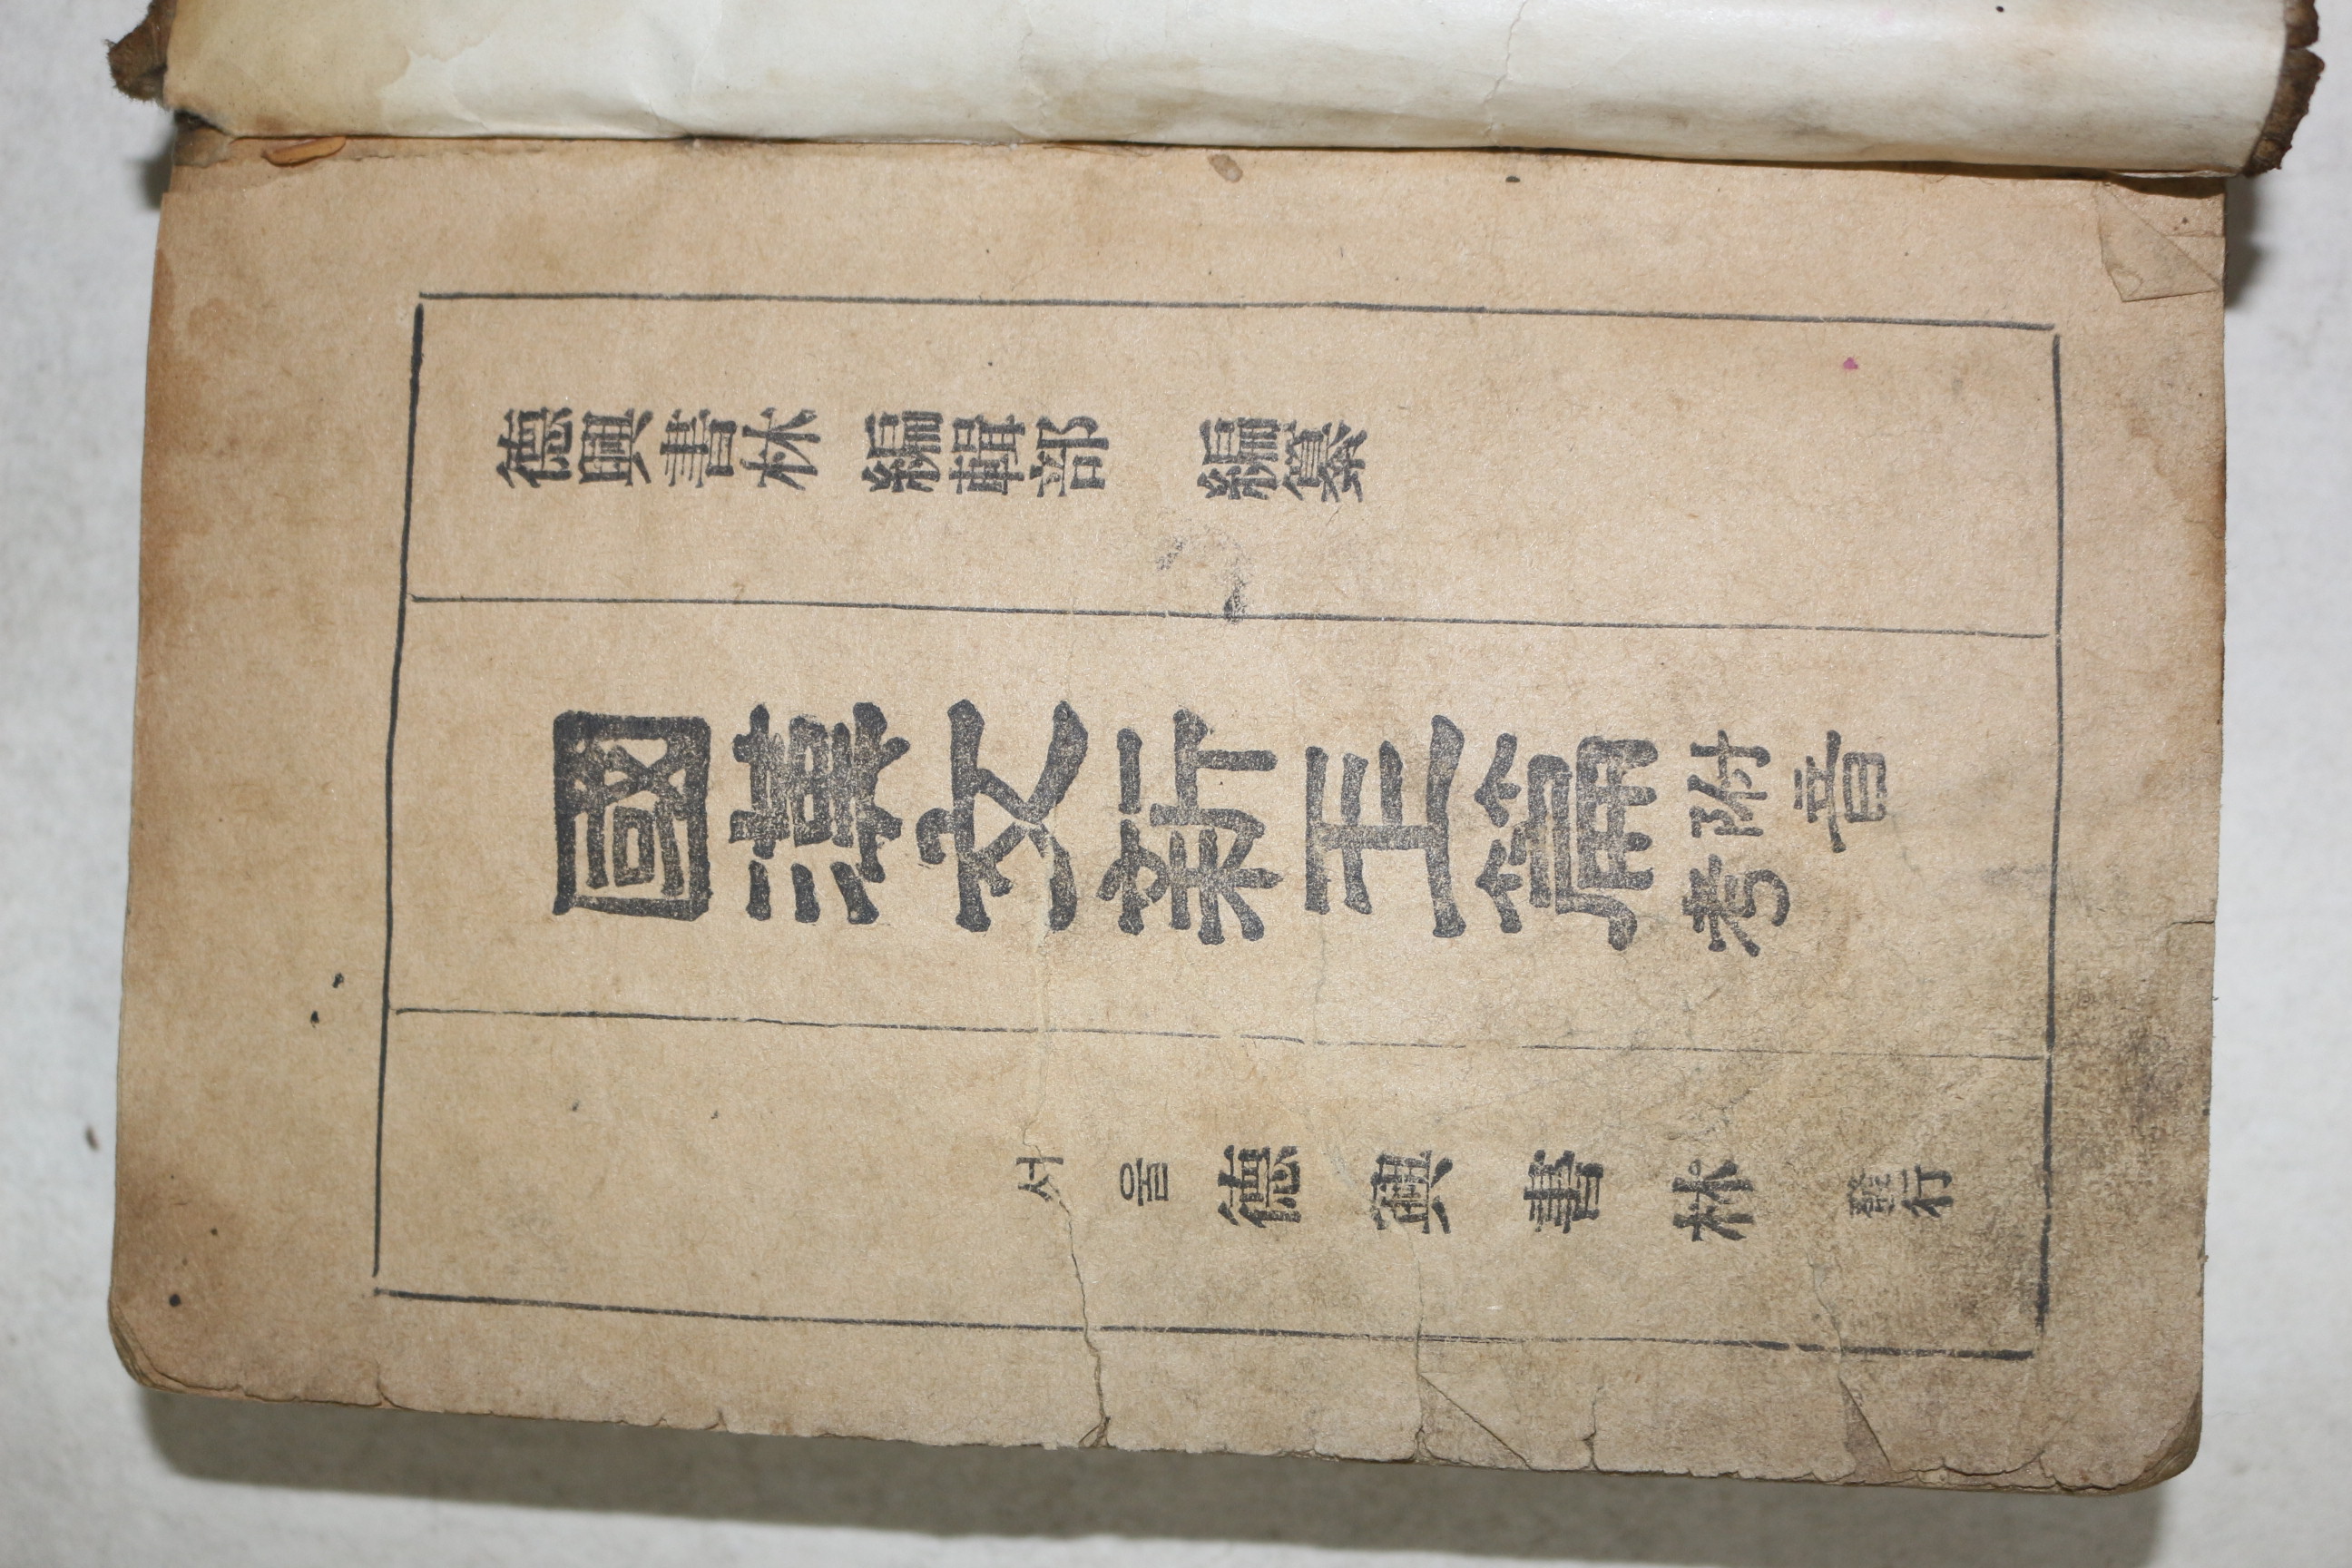 德興書林 編輯部 編纂
國漢文新玉篇 附音考
서울 德興書林 發行